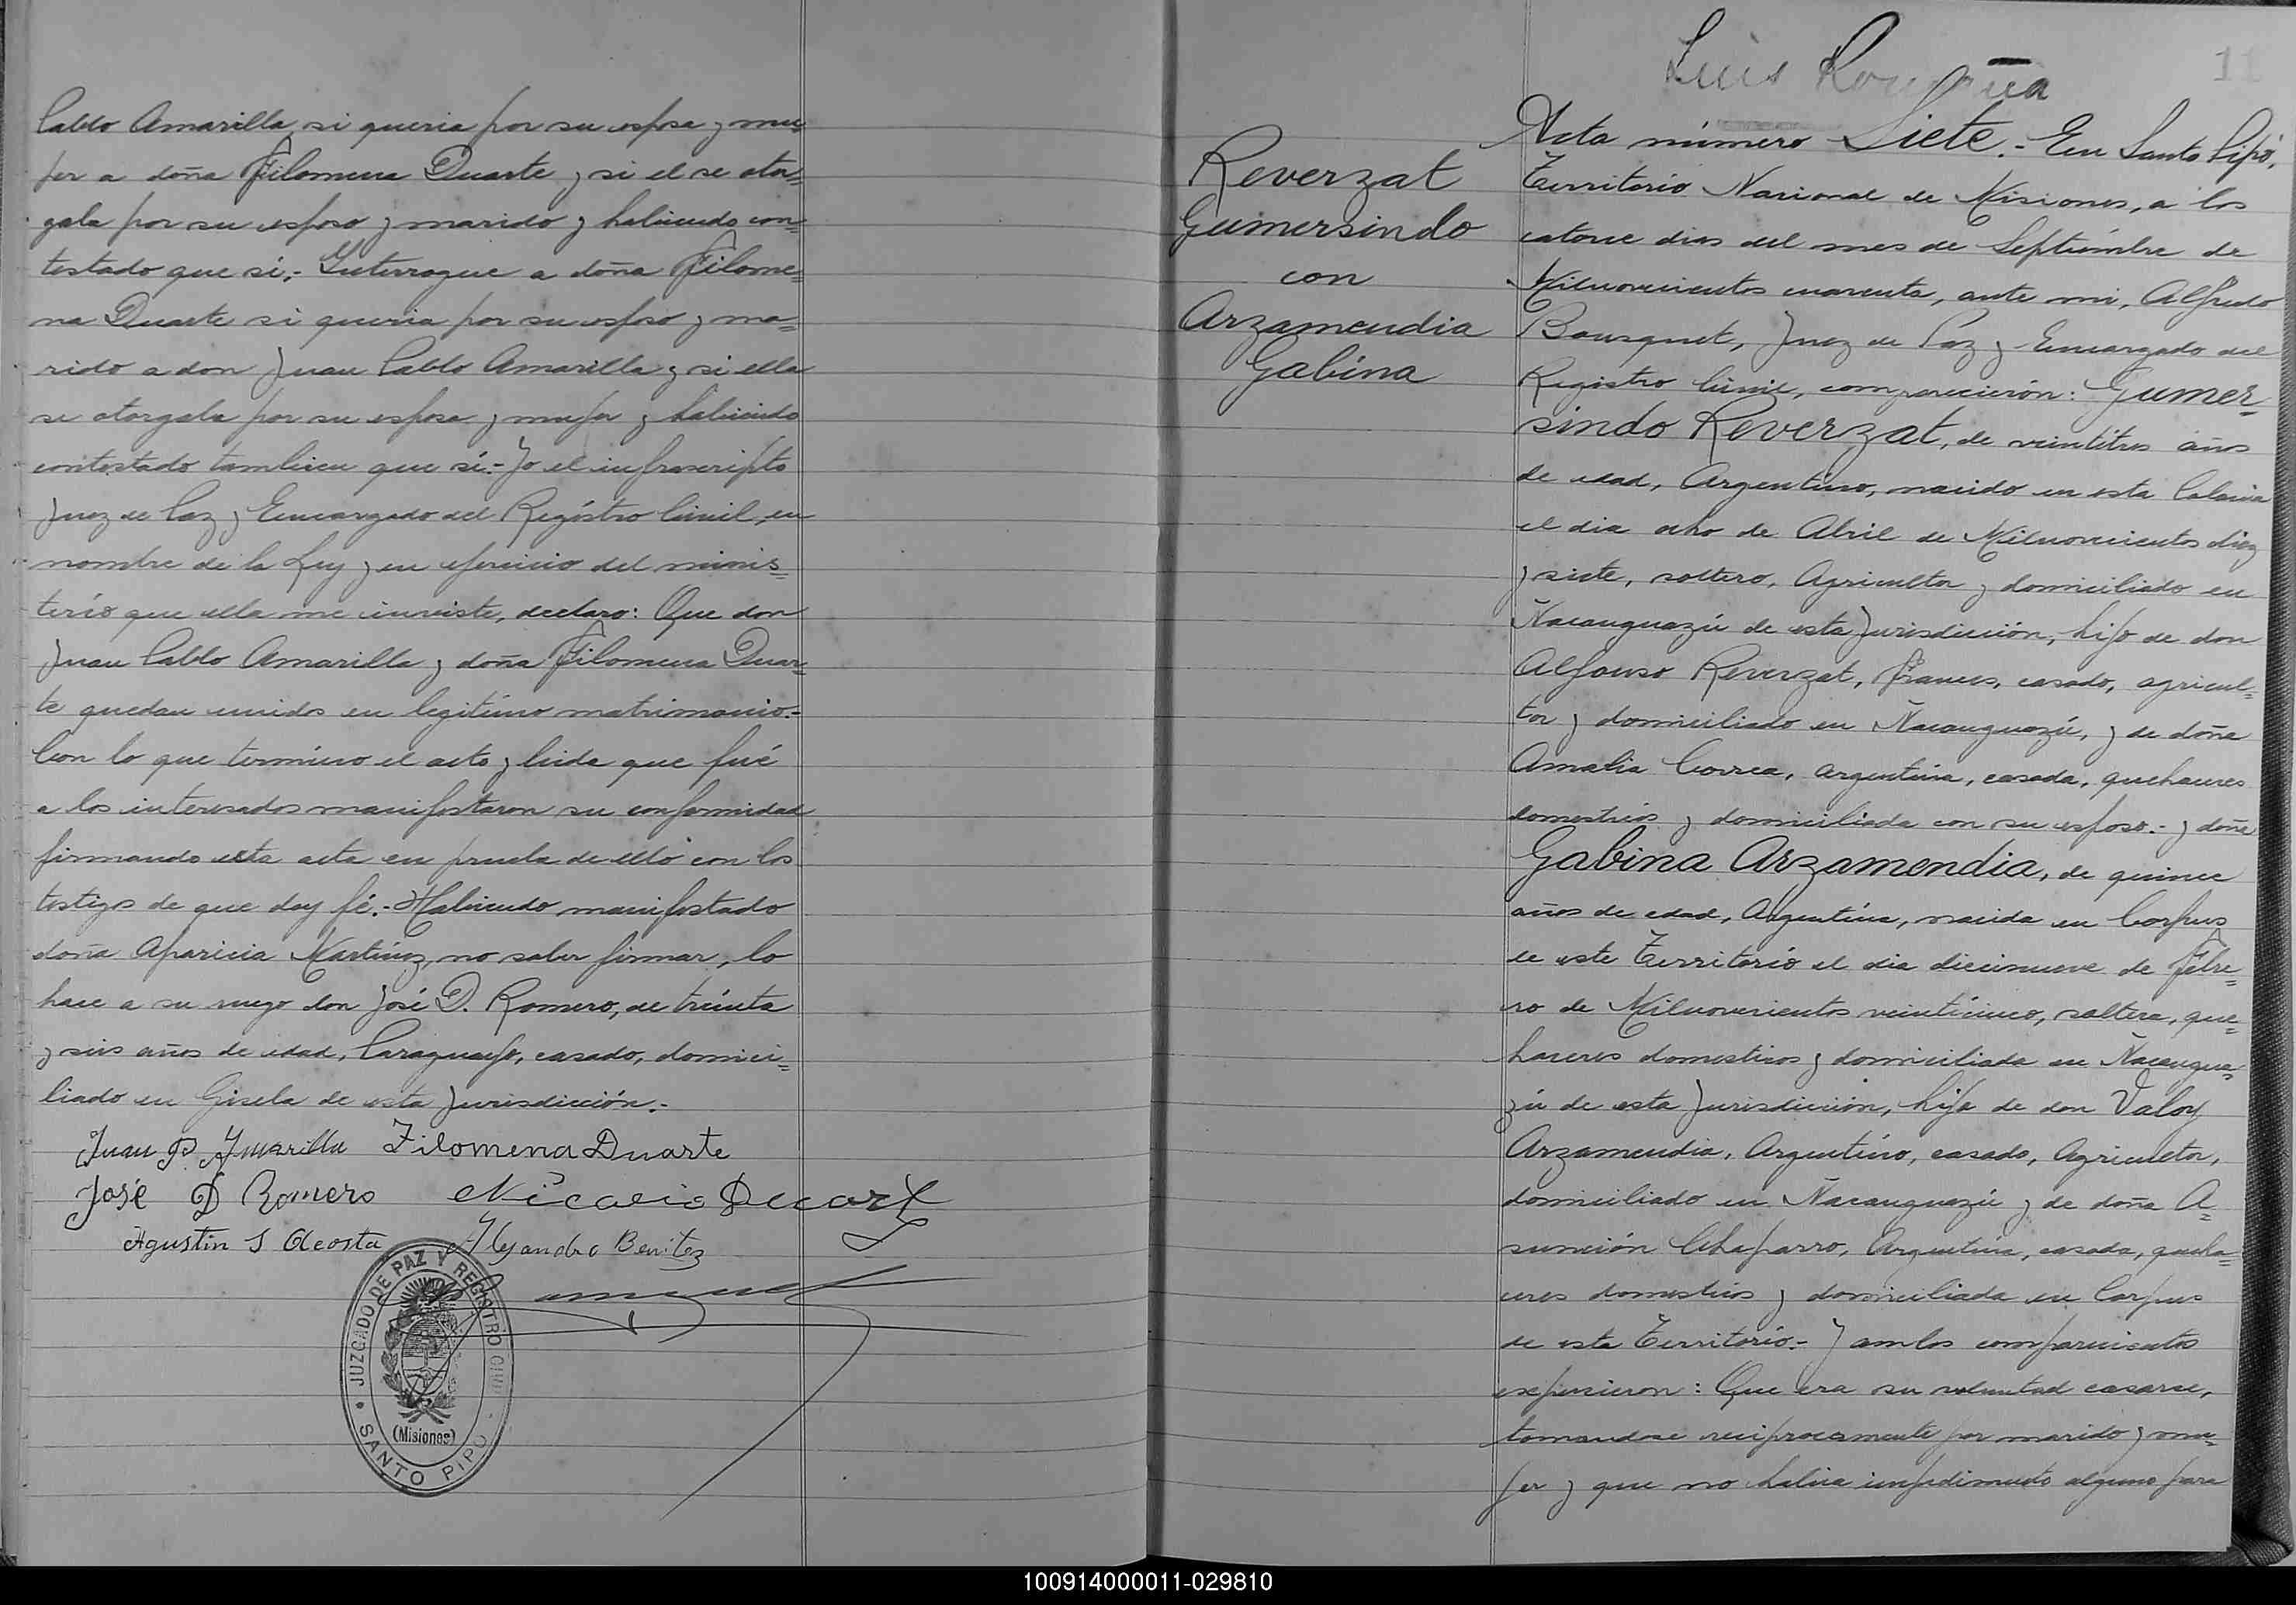 Pablo Amarilla si queria por su esposa y mu-
jer a doña Filomena Duarte y si el se otor=
gaba por su esposo y marido y habiendo con=
testado que sí.- Interrogue a doña Filome=
na Duarte si queria por su esposo y ma=
rido a don Juan Pablo Amarilla y si ella
se otorgaba por su esposa y mujer y habiendo
contestado tambien que sí.- Yo el infrascripto
Juez de Paz y Encargado del Registro Civil, en
nombre de la Ley y en ejercicio del minis=
terio que ella me inviste, declaro: Que don
Juan Pablo Amarilla y doña Filomena Duar=
te quedan unidos en legitimo matrimonio.-
Con lo que termino el acto y leida que fué
a los interesados manifestaron su conformidad
firmando esta acta en prueba de ello con los
testigos de que doy fé.- Habiendo manifestado
doña Aparicia Martinez, no saber firmar, lo
hace a su ruego don José D. Romero, de treinta
y seis años de edad, Paraguayo, casado, domici=
liado en Gisela de esta Jurisdicción.-
Juan P. Amarilla Filomena Duarte
José D Romero
Agustin S Acosta Alejandro Benitez
JUZGADO DE PAZ Y REGISTRO CIVIL
(Misiones)
SANTO PIPO
Luis
11
Reverzat
Gumersindo
con
Arzamendia
Gabina
Acta número Siete.- En Santo Pipó,
Territorio Nacional de Misiones, a los
catorce dias del mes de Septiembre de
Milnovecientos cuarenta, ante mi, Alfredo
Bousquet, Juez de Paz y Encargado del
Registro Civil, comparecieron: Gumer=
sindo Reverzat, de veintitres años
de edad, Argentino, nacido en esta Colonia
el dia ocho de Abril de Milnovecientos diez
y siete, soltero, Agricultor y domiciliado en
Ñacanguazú de esta Jurisdicción, hijo de don
Alfonso Reverzat, frances, casado, agricul=
tor y domiciliado en Ñacanguazú, y de doña
Amalia Correa, argentina, casada, quehaceres
domesticos y domiciliada con su esposo.- y doña
Gabina Arzamendia, de quince
años de edad, Argentina, nacida en Corpus
de este Territorio el dia diecinueve de Febre=
ro de Milnovecientos veinticinco, soltera, que=
haceres domesticos y domiciliada en Ñacangua=
zú de esta Jurisdicción, hija de don Valoy
Arzamendia, Argentino, casado, Agricultor,
domiciliado en Ñacanguazú y de doña A=
sunción Chaparro, Argentina, casada, queha=
ceres domesticos y domiciliada en Corpus
de este Territorio.- Y ambos comparecientes
expusieron: Que era su voluntad casarse,
tomandose reciprocamente por marido y mu=
jer y que no habia impedimento alguno para
100914000011-029810